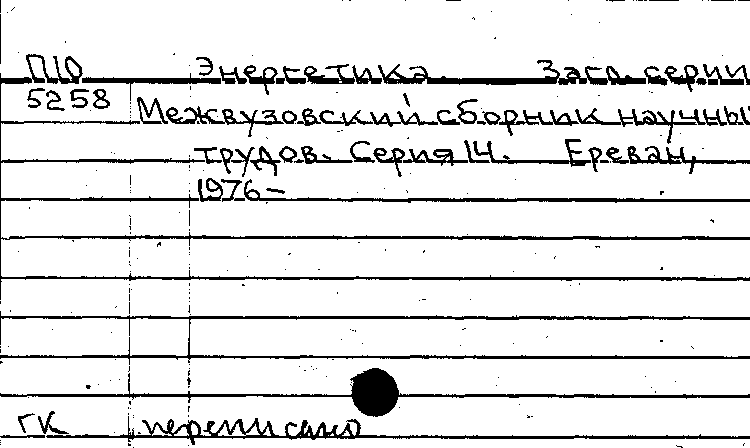 П10 Энергетика. Загл. серии
5258 Межвузовский сборник научны
трудов. Серия 14. Ереван,
1976-
ГК переписано